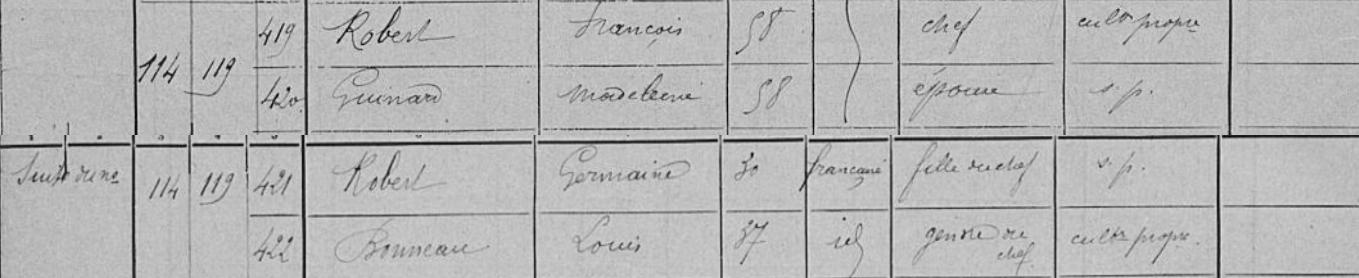 419 Robert François 58 chef cultr propre
114 119
420 Guinard Madeleine 58 épouse s. p.
Suite du no 114 119 421 Robert Germaine 30 française fille du chef s. p.
422 Bonneau Louis 37 id gendre du chef cultr propre